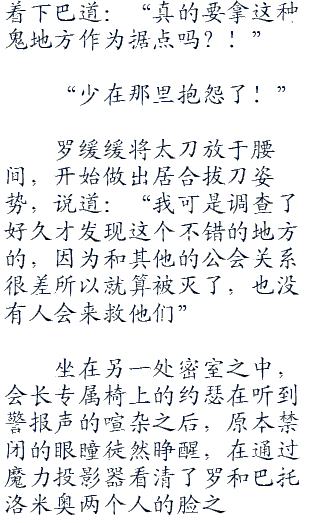 着下巴道：“真的要拿这种
鬼地方作为据点吗？！”
“少在那里抱怨了！”
罗缓缓将太刀放于腰
间，开始做出居合拔刀姿
势，说道：“我可是调查了
好久才发现这个不错的地方
的，因为和其他的公会关系
很差所以就算被灭了，也没
有人会来救他们”
坐在另一处密室之中，
会长专属椅上的约瑟在听到
警报声的喧杂之后，原本禁
闭的眼瞳徒然睁醒，在通过
魔力投影器看清了罗和巴托
洛米奥两个人的脸之